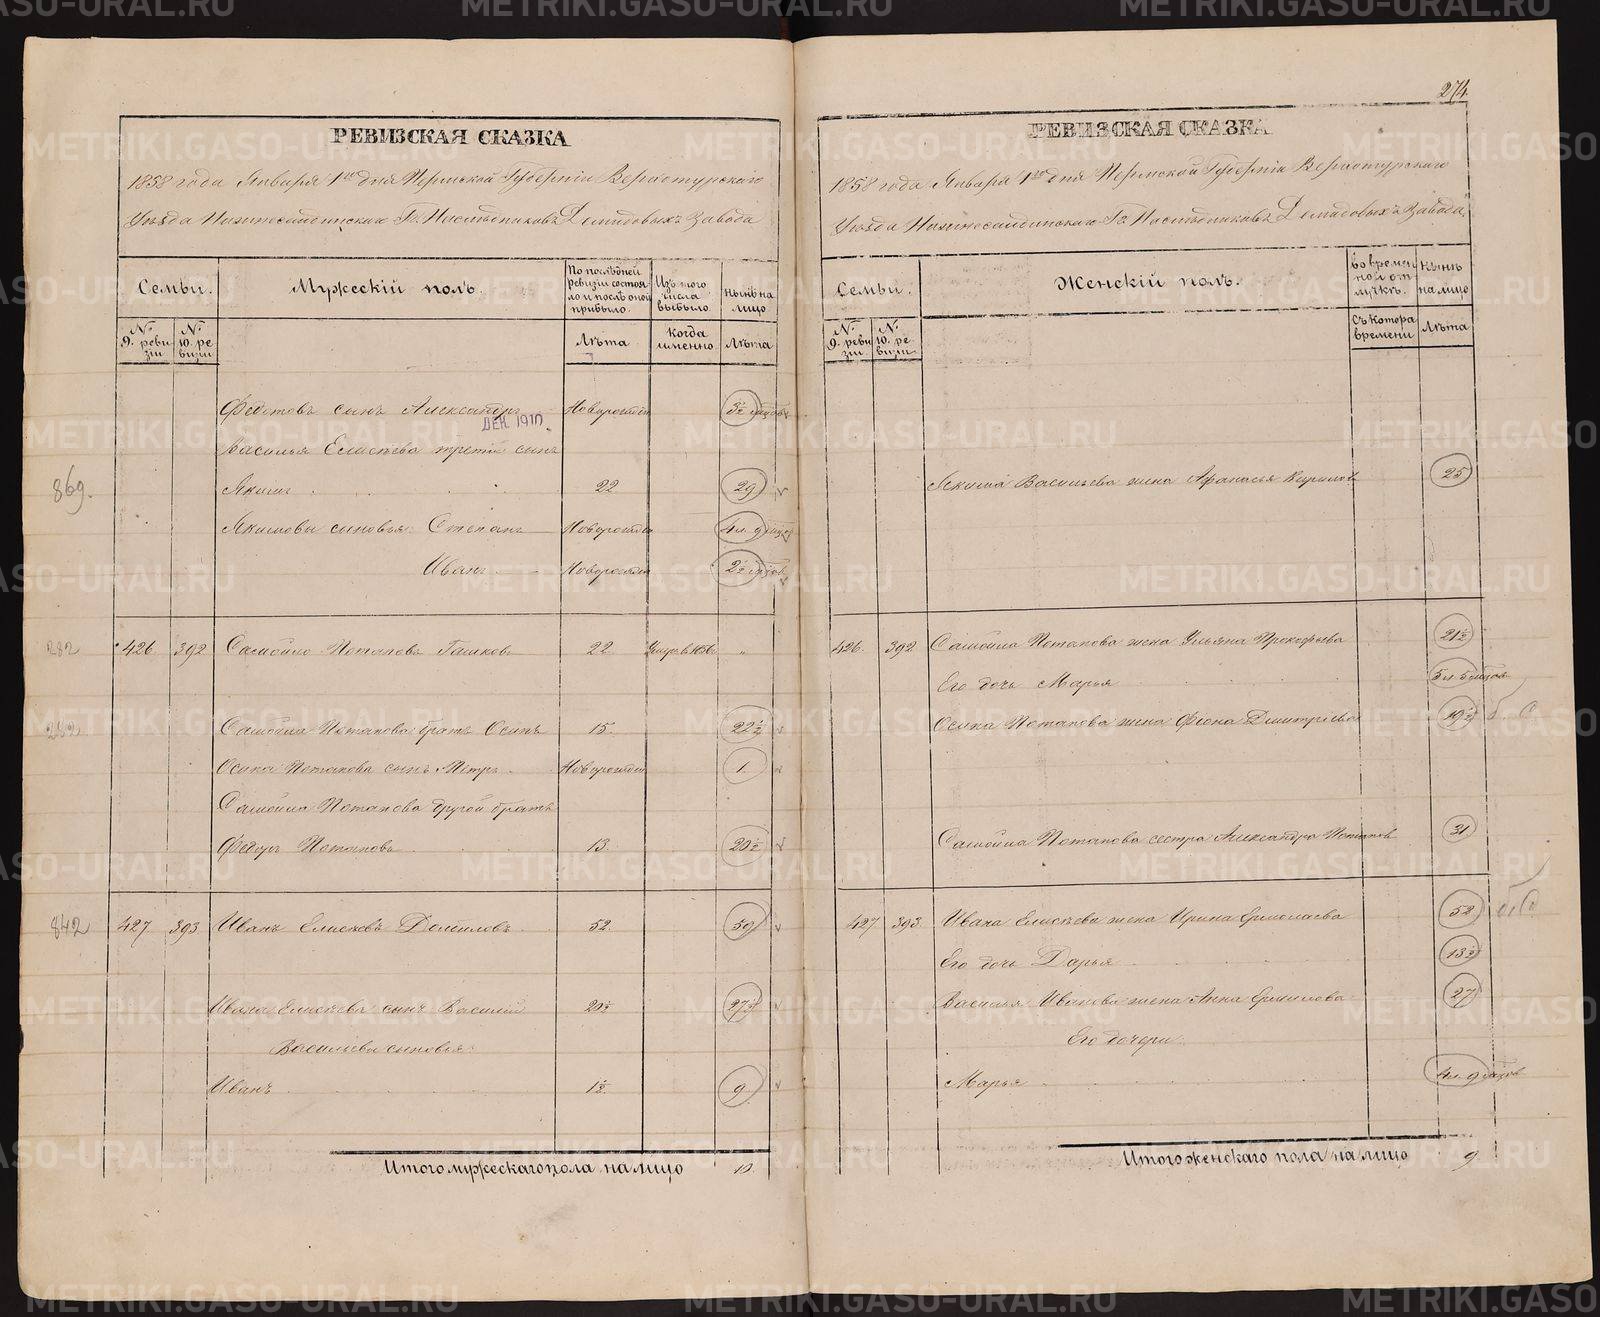 274.
РЕВИЗСКАЯ СКАЗКА
1858 года Января 1го дня Пермской Губерніи Верхотурскаго
Уѣзда Нижнесалдинскаго Гг. Наслѣдниковъ Демидовыхъ Завода
Семьи.
Мужескій полъ.
По послѣдней ревизіи состояло и послѣ оной прибыло.
Изъ того числа выбыло
Нынѣ на лицо
№ 9. ревизіи
№ 10. ревизіи
Лѣта
Когда именно
Лѣта
Федотовъ сынъ Александръ Новорожден 3½ мѣсяцов
ДЕК 1910
Василья Елисѣева третій сынъ
869.
Якимъ 22 29
Якимовы сыновья: Степанъ Новорожден 4 л. 9 мѣсяц
Иванъ Новорожден 2½ мѣсяцов
282 426 392 Самойло Потаповъ 22 Умеръ в 1856 "
282 Самойла Потапова братъ Осипъ 15. 22½
Осипа Потапова сынъ Петръ Новорожден 1.
Самойла Потапова другой братъ
Федоръ Потаповъ 13. 20½
842 427 393 Иванъ Елисѣевъ 52. 59
Ивана Елисѣева сынъ Василій 20½ 27½
Васильева сыновья:
Иванъ 1½ 9
Итого мужескаго пола на лицо 10.
РЕВИЗСКАЯ СКАЗКА
1858 года Января 1го дня Пермской Губерніи Верхотурскаго
Уѣзда Нижнесалдинскаго Гг. Наслѣдниковъ Демидовыхъ Завода
Семьи.
Женскій полъ.
во временной отлучкѣ.
Нынѣ на лицо
№ 9. ревизіи
№ 10. ревизіи
Съ котора времени
Лѣта
Якима Васильева жена Афанасья Кирилов 25
426. 392 Самойла Потапова жена Ульяна Прокофьева 21½
Его дочь Марья 5 л. мѣсяцов
Осипа Потапова жена Фіона Дмитріева 19½
Самойла Потапова сестра Александра Потапов 31
427 393 Ивана Елисѣева жена Ирина Ермолаева 52
Его дочь Дарья 13½
Василья Иванова жена Анна 27
Его дочери:
Марья 4 л. 9 мѣсяцов
Итого женскаго пола на лицо 9
METRIKI.GASO-URAL.RU